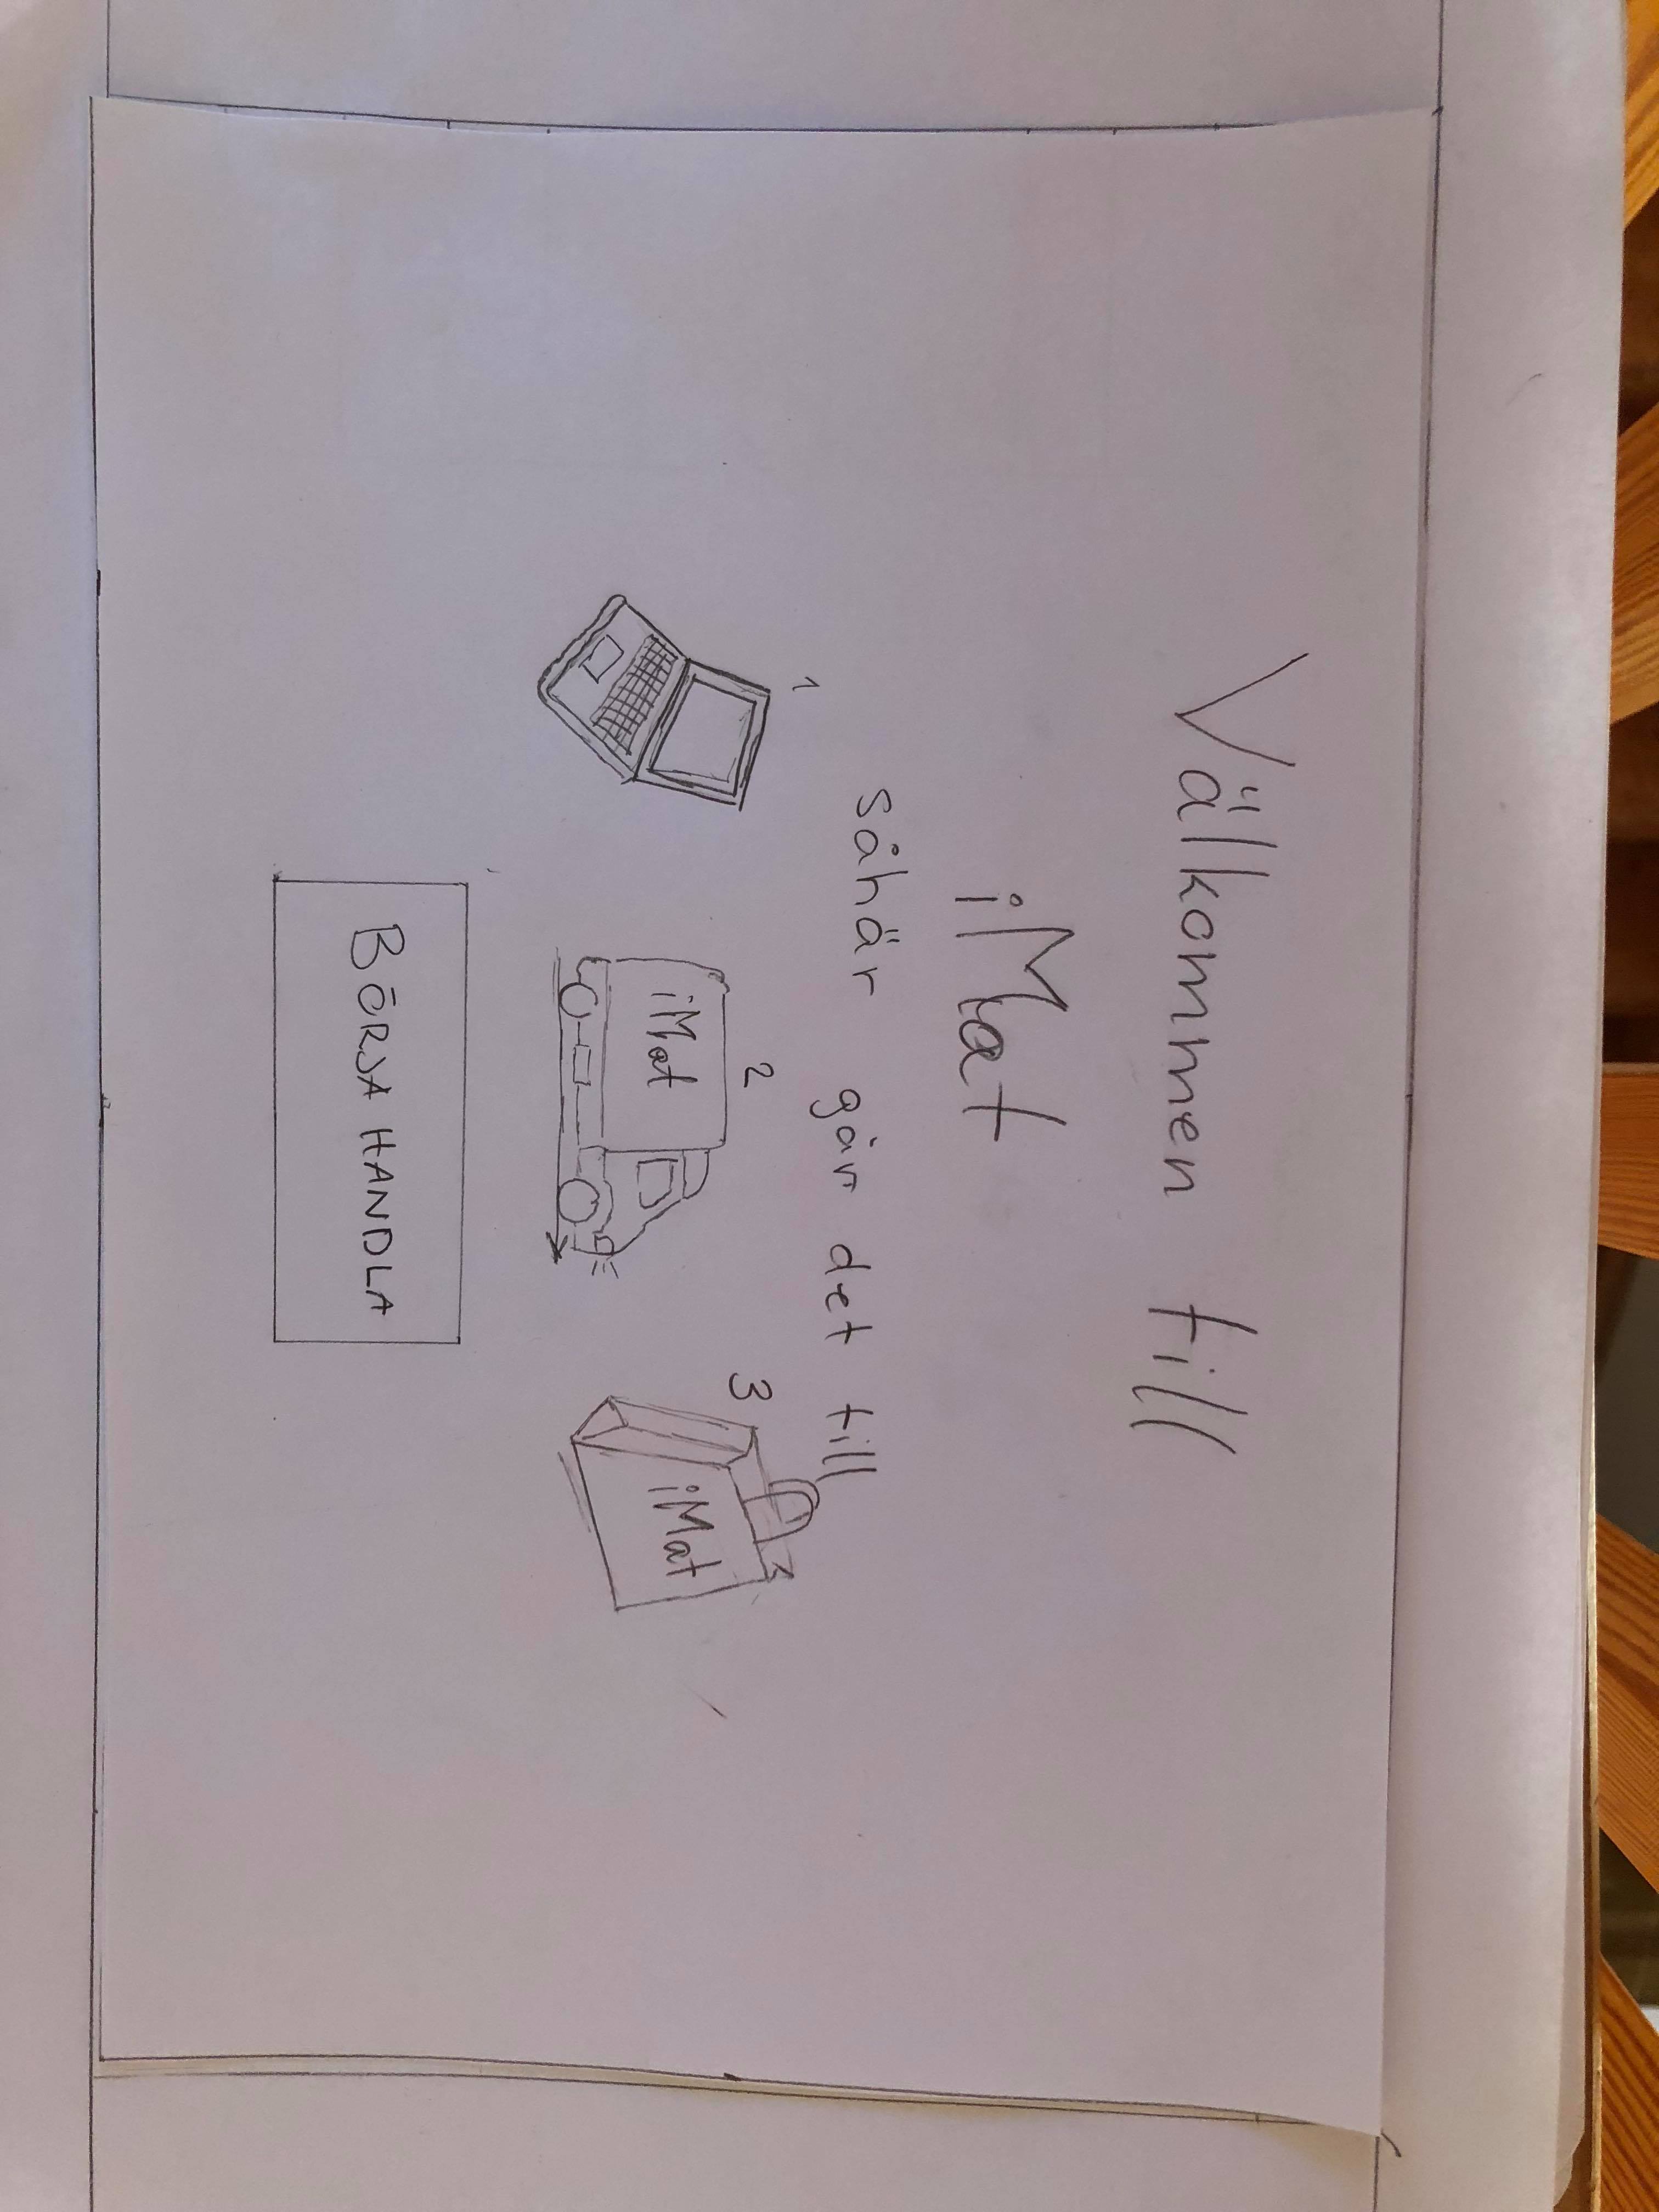 Välkommen till
iMat
såhär går det till
1
2
3
iMat
iMat
BÖRJA HANDLA